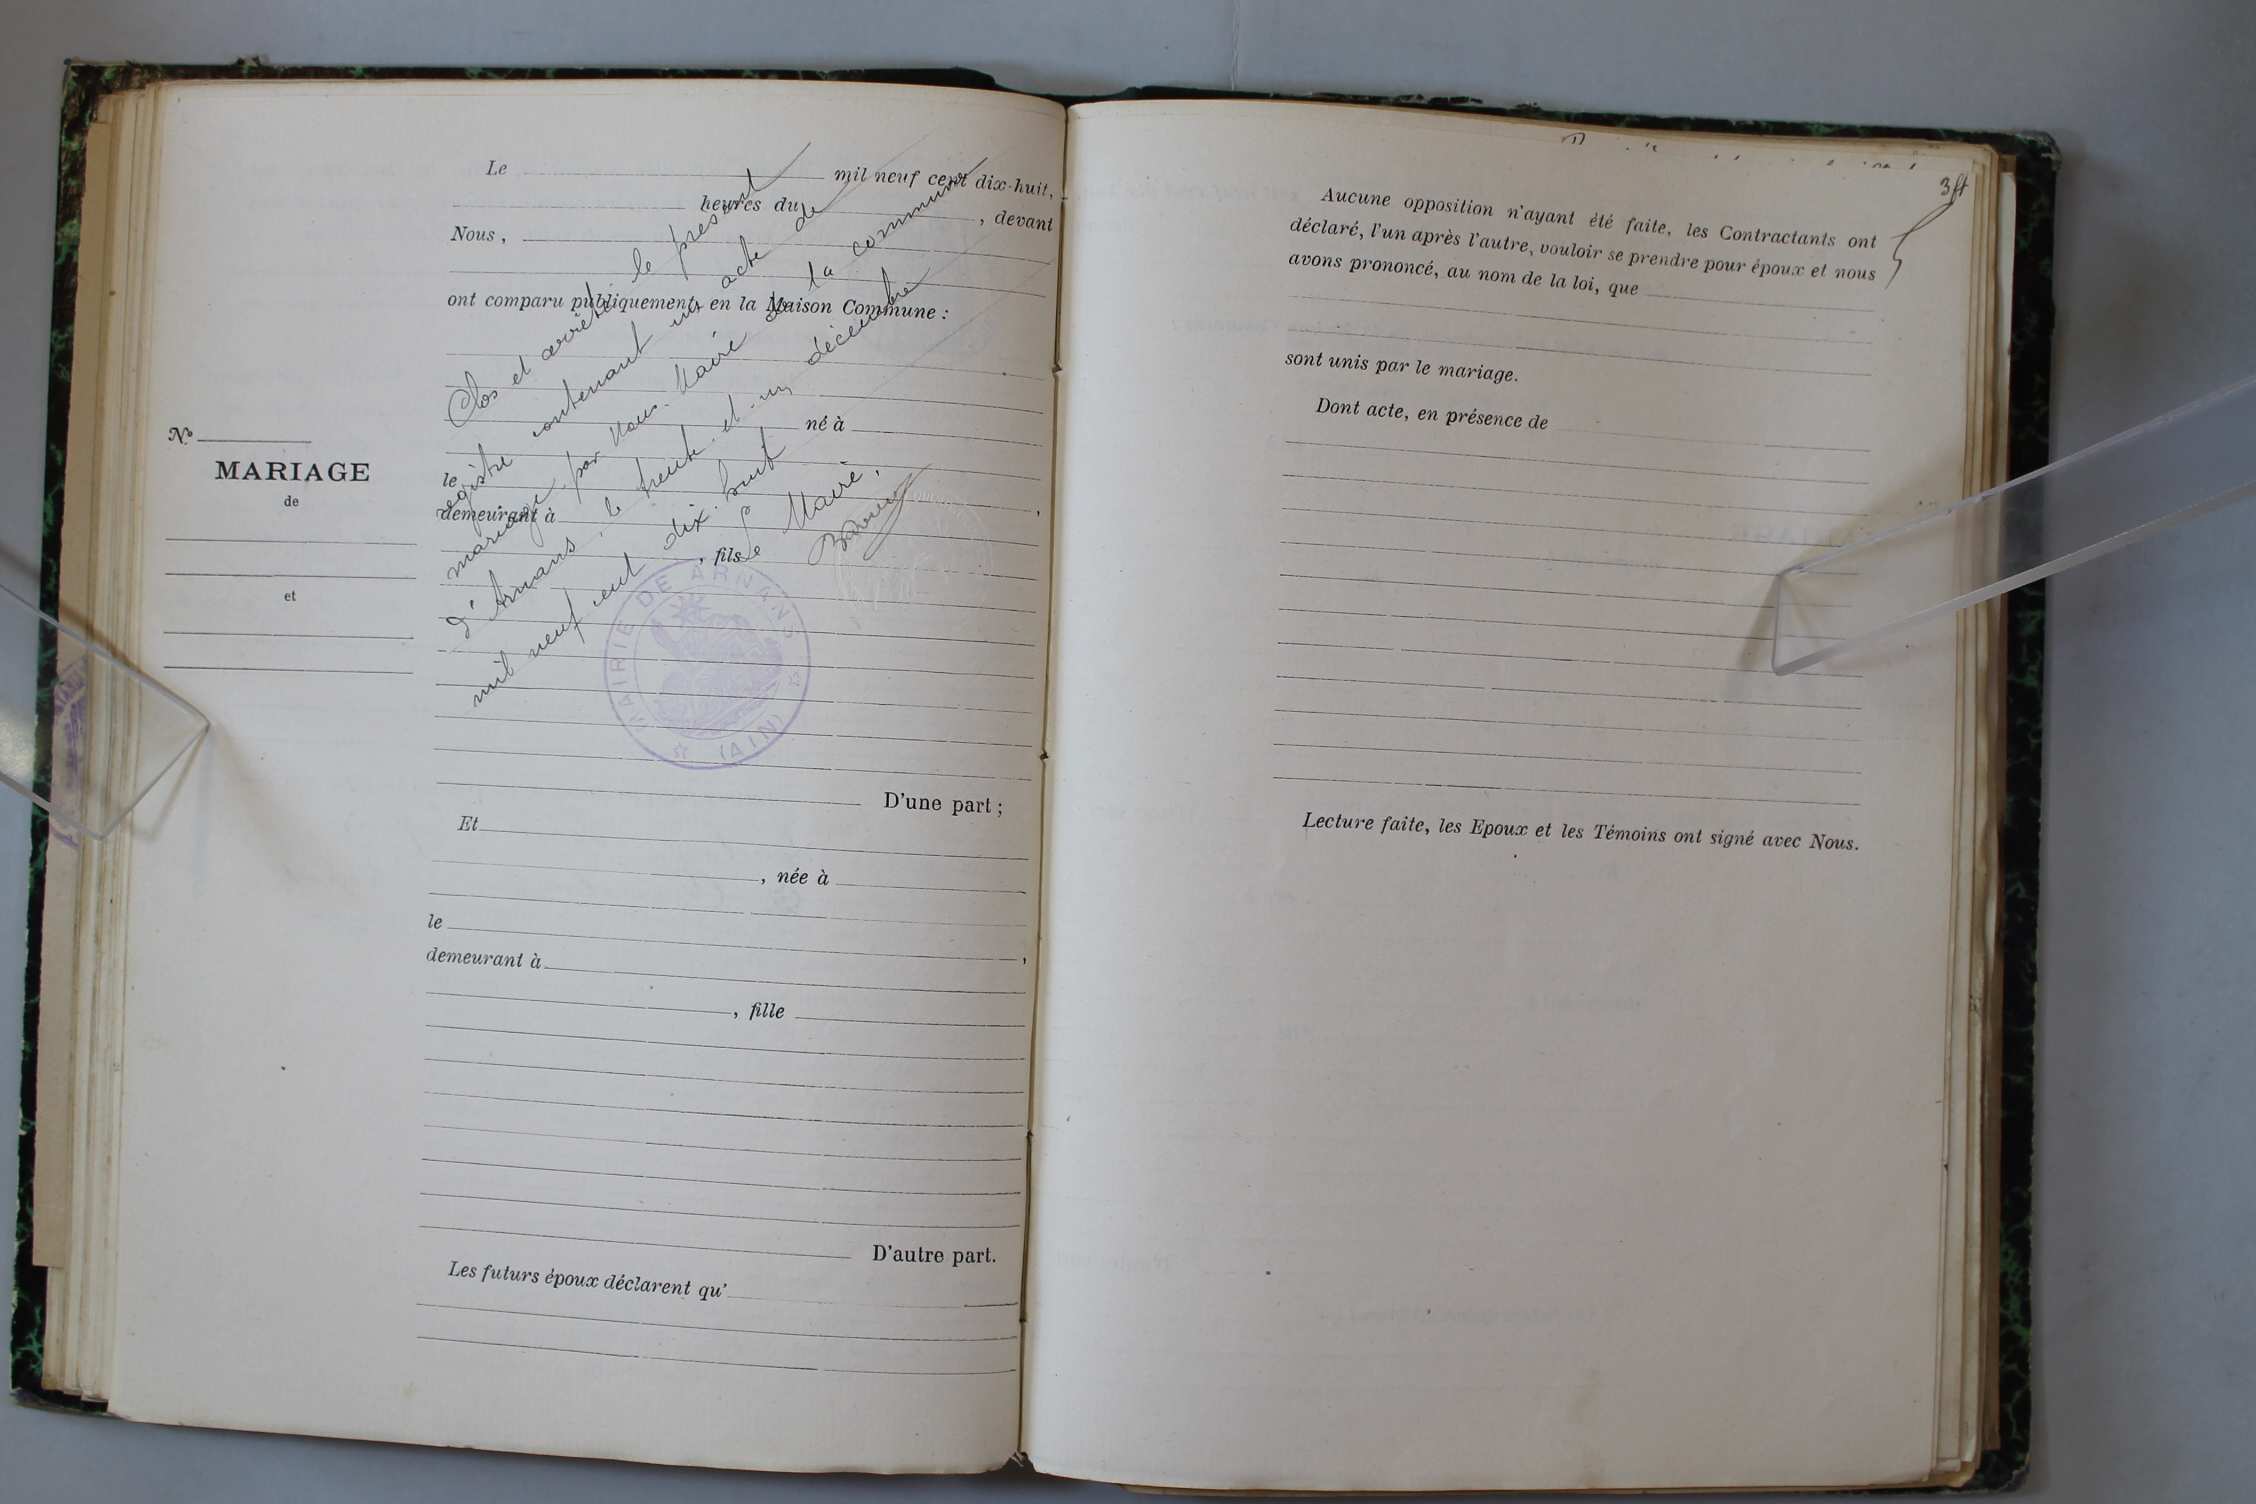 Le mil neuf cent dix-huit,
heures du , devant
Nous ,
ont comparu publiquement en la Maison Commune :
né à
le
demeurant à
, fils
D'une part ;
Et
, née à
le
demeurant à ,
, fille
D'autre part.
Les futurs époux déclarent qu'
No
MARIAGE
de
et
Clos et arrêté le présent
registre contenant un acte de
mariage, par Nous, Maire de la commune
d'Arnans, le trente-et-un décembre
mil neuf cent dix-huit
Le Maire,
MAIRIE DE ARNANS
(AIN)
Aucune opposition n'ayant été faite, les Contractants ont
déclaré, l'un après l'autre, vouloir se prendre pour époux et nous
avons prononcé, au nom de la loi, que
sont unis par le mariage.
Dont acte, en présence de
Lecture faite, les Epoux et les Témoins ont signé avec Nous.